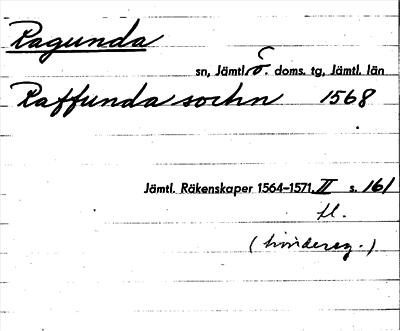 Ragunda
sn, Jämtl. ö. doms. tg, Jämtl. län
Raffunda sochn 1568
Jämtl. Räkenskaper 1564–1571. II s. 161
fl.